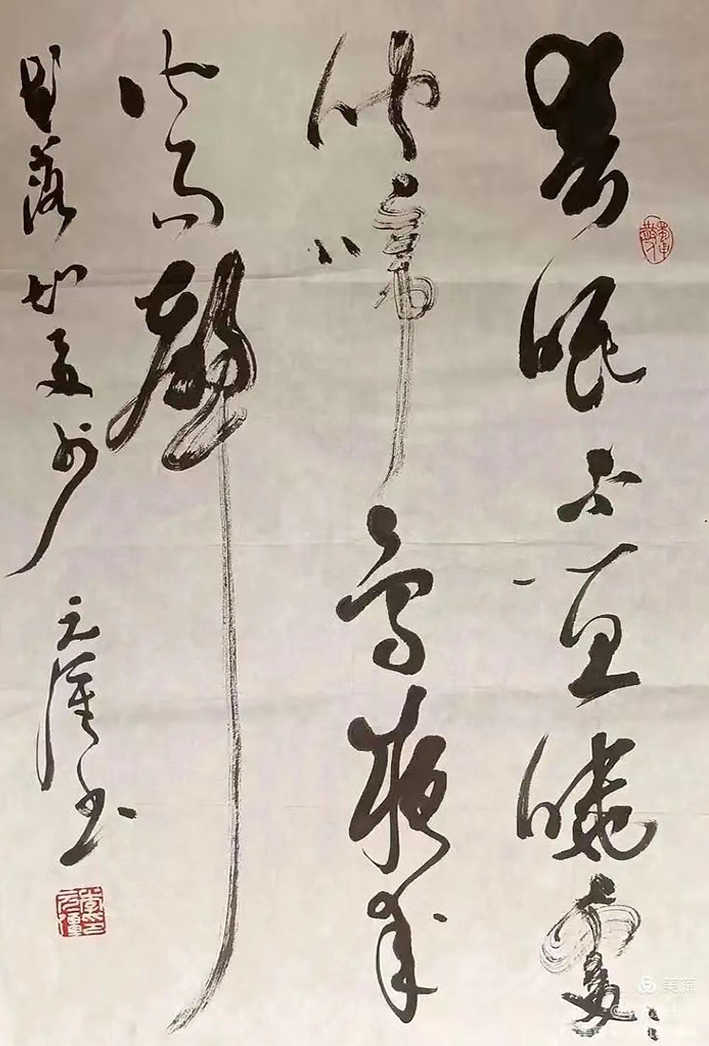 春眠不覺曉處々
聞啼鳥夜來
風雨聲
花落知多少
书
美篇